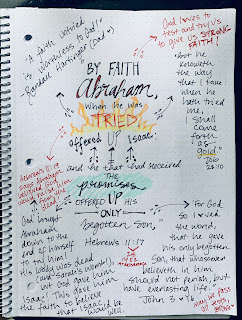 "A faith untried
is slothfulness to God!"
God loves to
test and try us
to give us STRONG
FAITH!
BY FAITH
Abraham,
When he was
TRIED,
offered UP Isaac:
and he that had received
The promises
OFFERED UP HIS
ONLY
begotten son,"
Hebrews 11:17
"But he
knoweth
the way
that I
take when
he hath
tried me,
I shall
come
forth
as
gold."
Job
23:10
Hebrews 11:19
says Abraham
believed God
would raise him
from the dead
God brought
Abraham
down to the
end of himself
to try him!
His body was dead
(and Sarah's womb!),
but God gave him
Isaac! This gave him
the faith to believe
that Isaac'd
be well.
"For God
so loved
the
world,
that he gave
his only begotten
Son, that whosoever
believeth in him
should not perish, but
have everlasting life."
John 3:16
may we pass
all God's
tests!